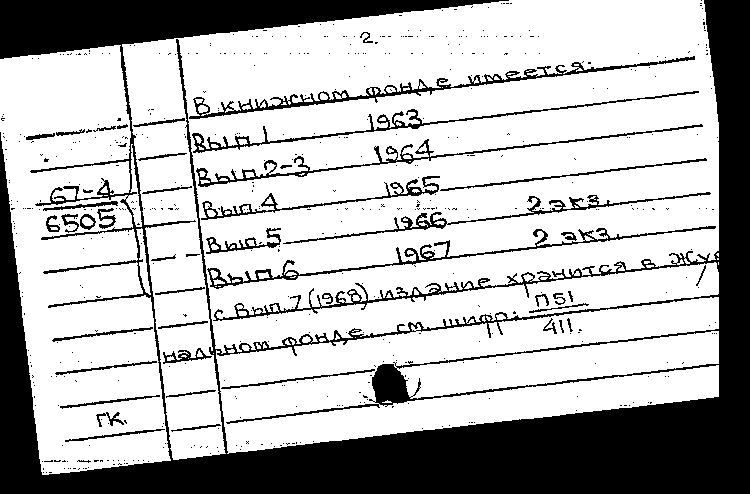 2.
В книжном фонде имеется:
Вып. 1 1963
Вып. 2-3 1964
67-4
6505
Вып. 4 1965
Вып. 5 1966 2 экз.
Вып. 6 1967 2 экз.
с Вып. 7 (1968) издание хранится в Жур
нальном фонде. см. шифр: П51
411.
ГК.